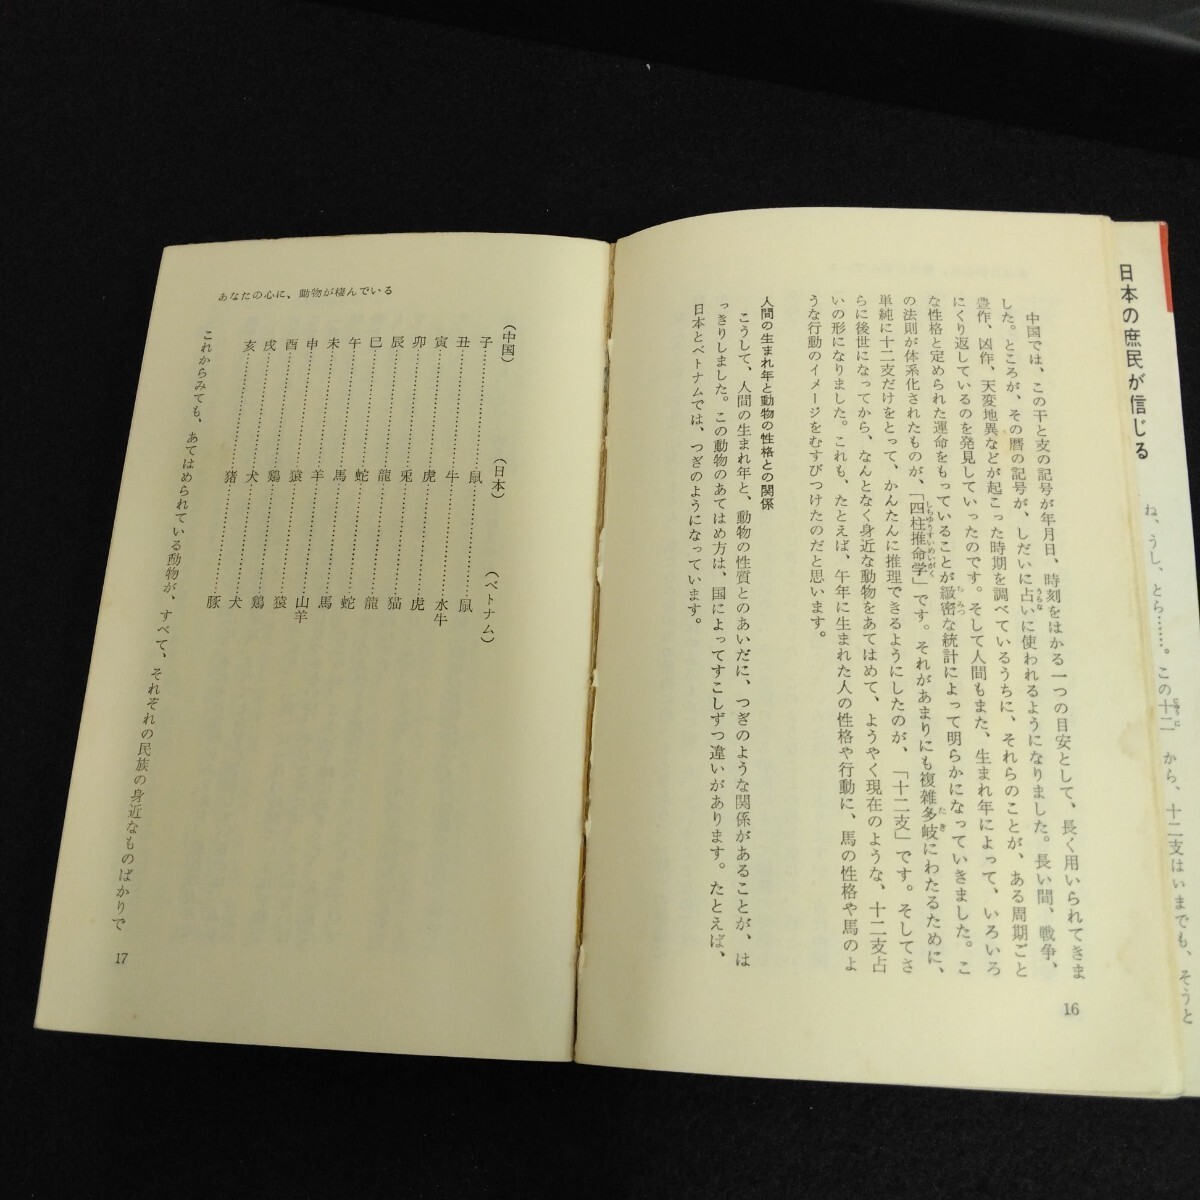 日本の庶民が信じる
ね、うし、とら……。この十二
から、十二支はいまでも、そうと
中国では、この干と支の記号が年月日、時刻をはかる一つの目安として、長く用いられてきま
した。ところが、その暦の記号が、しだいに占いに使われるようになりました。長い間、戦争、
豊作、凶作、天変地異などが起こった時期を調べているうちに、それらのことが、ある周期ごと
にくり返しているのを発見していったのです。そして人間もまた、生まれ年によって、いろいろ
な性格と定められた運命をもっていることが緻密な統計によって明らかになっていきました。こ
の法則が体系化されたものが、「四柱推命学」です。それがあまりにも複雑多岐にわたるために、
単純に十二支だけをとって、かんたんに推理できるようにしたのが、「十二支」です。そしてさ
らに後世になってから、なんとなく身近な動物をあてはめて、ようやく現在のような、十二支占
いの形になりました。これも、たとえば、午年に生まれた人の性格や行動に、馬の性格や馬のよ
うな行動のイメージをむすびつけたのだと思います。
人間の生まれ年と動物の性格との関係
こうして、人間の生まれ年と、動物の性質とのあいだに、つぎのような関係があることが、は
っきりしました。この動物のあてはめ方は、国によってすこしずつ違いがあります。たとえば、
日本とベトナムでは、つぎのようになっています。
16
あなたの心に、動物が棲んでいる
（中国）（日本）（ベトナム）
子……鼠……鼠
丑……牛……水牛
寅……虎……虎
卯……兎……猫
辰……龍……龍
巳……蛇……蛇
午……馬……馬
未……羊……山羊
申……猿……猿
酉……鶏……鶏
戌……犬……犬
亥……猪……豚
これからみても、あてはめられている動物が、すべて、それぞれの民族の身近なものばかりで
17